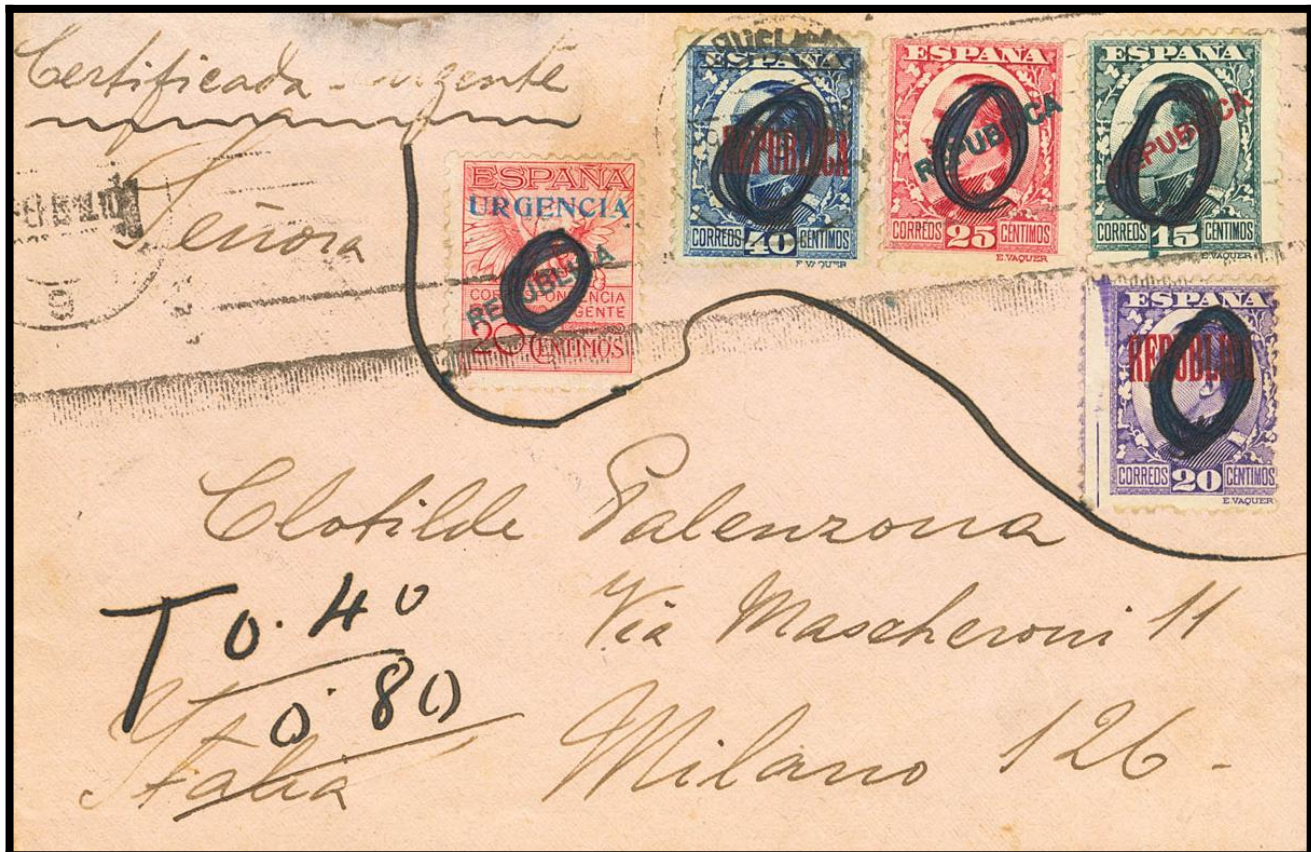 Certificada - urgente
Señora
ESPAÑA
REPUBLICA
CORREOS 40 CENTIMOS
E. VAQUER
ESPAÑA
REPUBLICA
CORREOS 25 CENTIMOS
E. VAQUER
ESPAÑA
REPUBLICA
CORREOS 15 CENTIMOS
E. VAQUER
ESPAÑA
URGENCIA
REPUBLICA
20 CENTIMOS
ESPAÑA
REPUBLICA
CORREOS 20 CENTIMOS
E. VAQUER
Clotilde Palenzona
Via Mascheroni 11
Milano 126 -
T 0.40
0.80
Italia